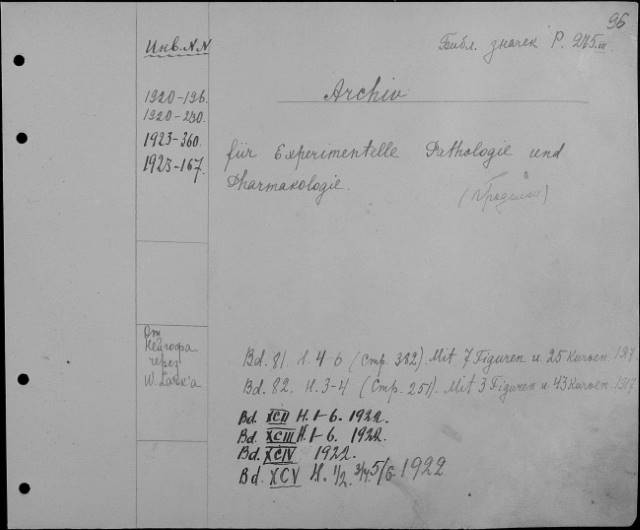 95
Инв. N.N
Библ. значек P. 245 III.
Archiv
1920-196.
1920-230.
1923-360.
1923-167.
für Experimentelle Pathologie und
Pharmakologie.
От
через
Bd. 81. H. 4-6 (Стр. 382). Mit 7 Figuren u. 25 Kurven. 1917.
Bd. 82. H. 3-4 (Стр. 251). Mit 3 Figuren u. 43 Kurven. 1917.
Bd. XCII H. 1-6. 1922.
Bd. XCIII H. 1-6. 1922.
Bd. XCIV 1922.
Bd. XCV H. 1/2. 3/4. 5/6 1922